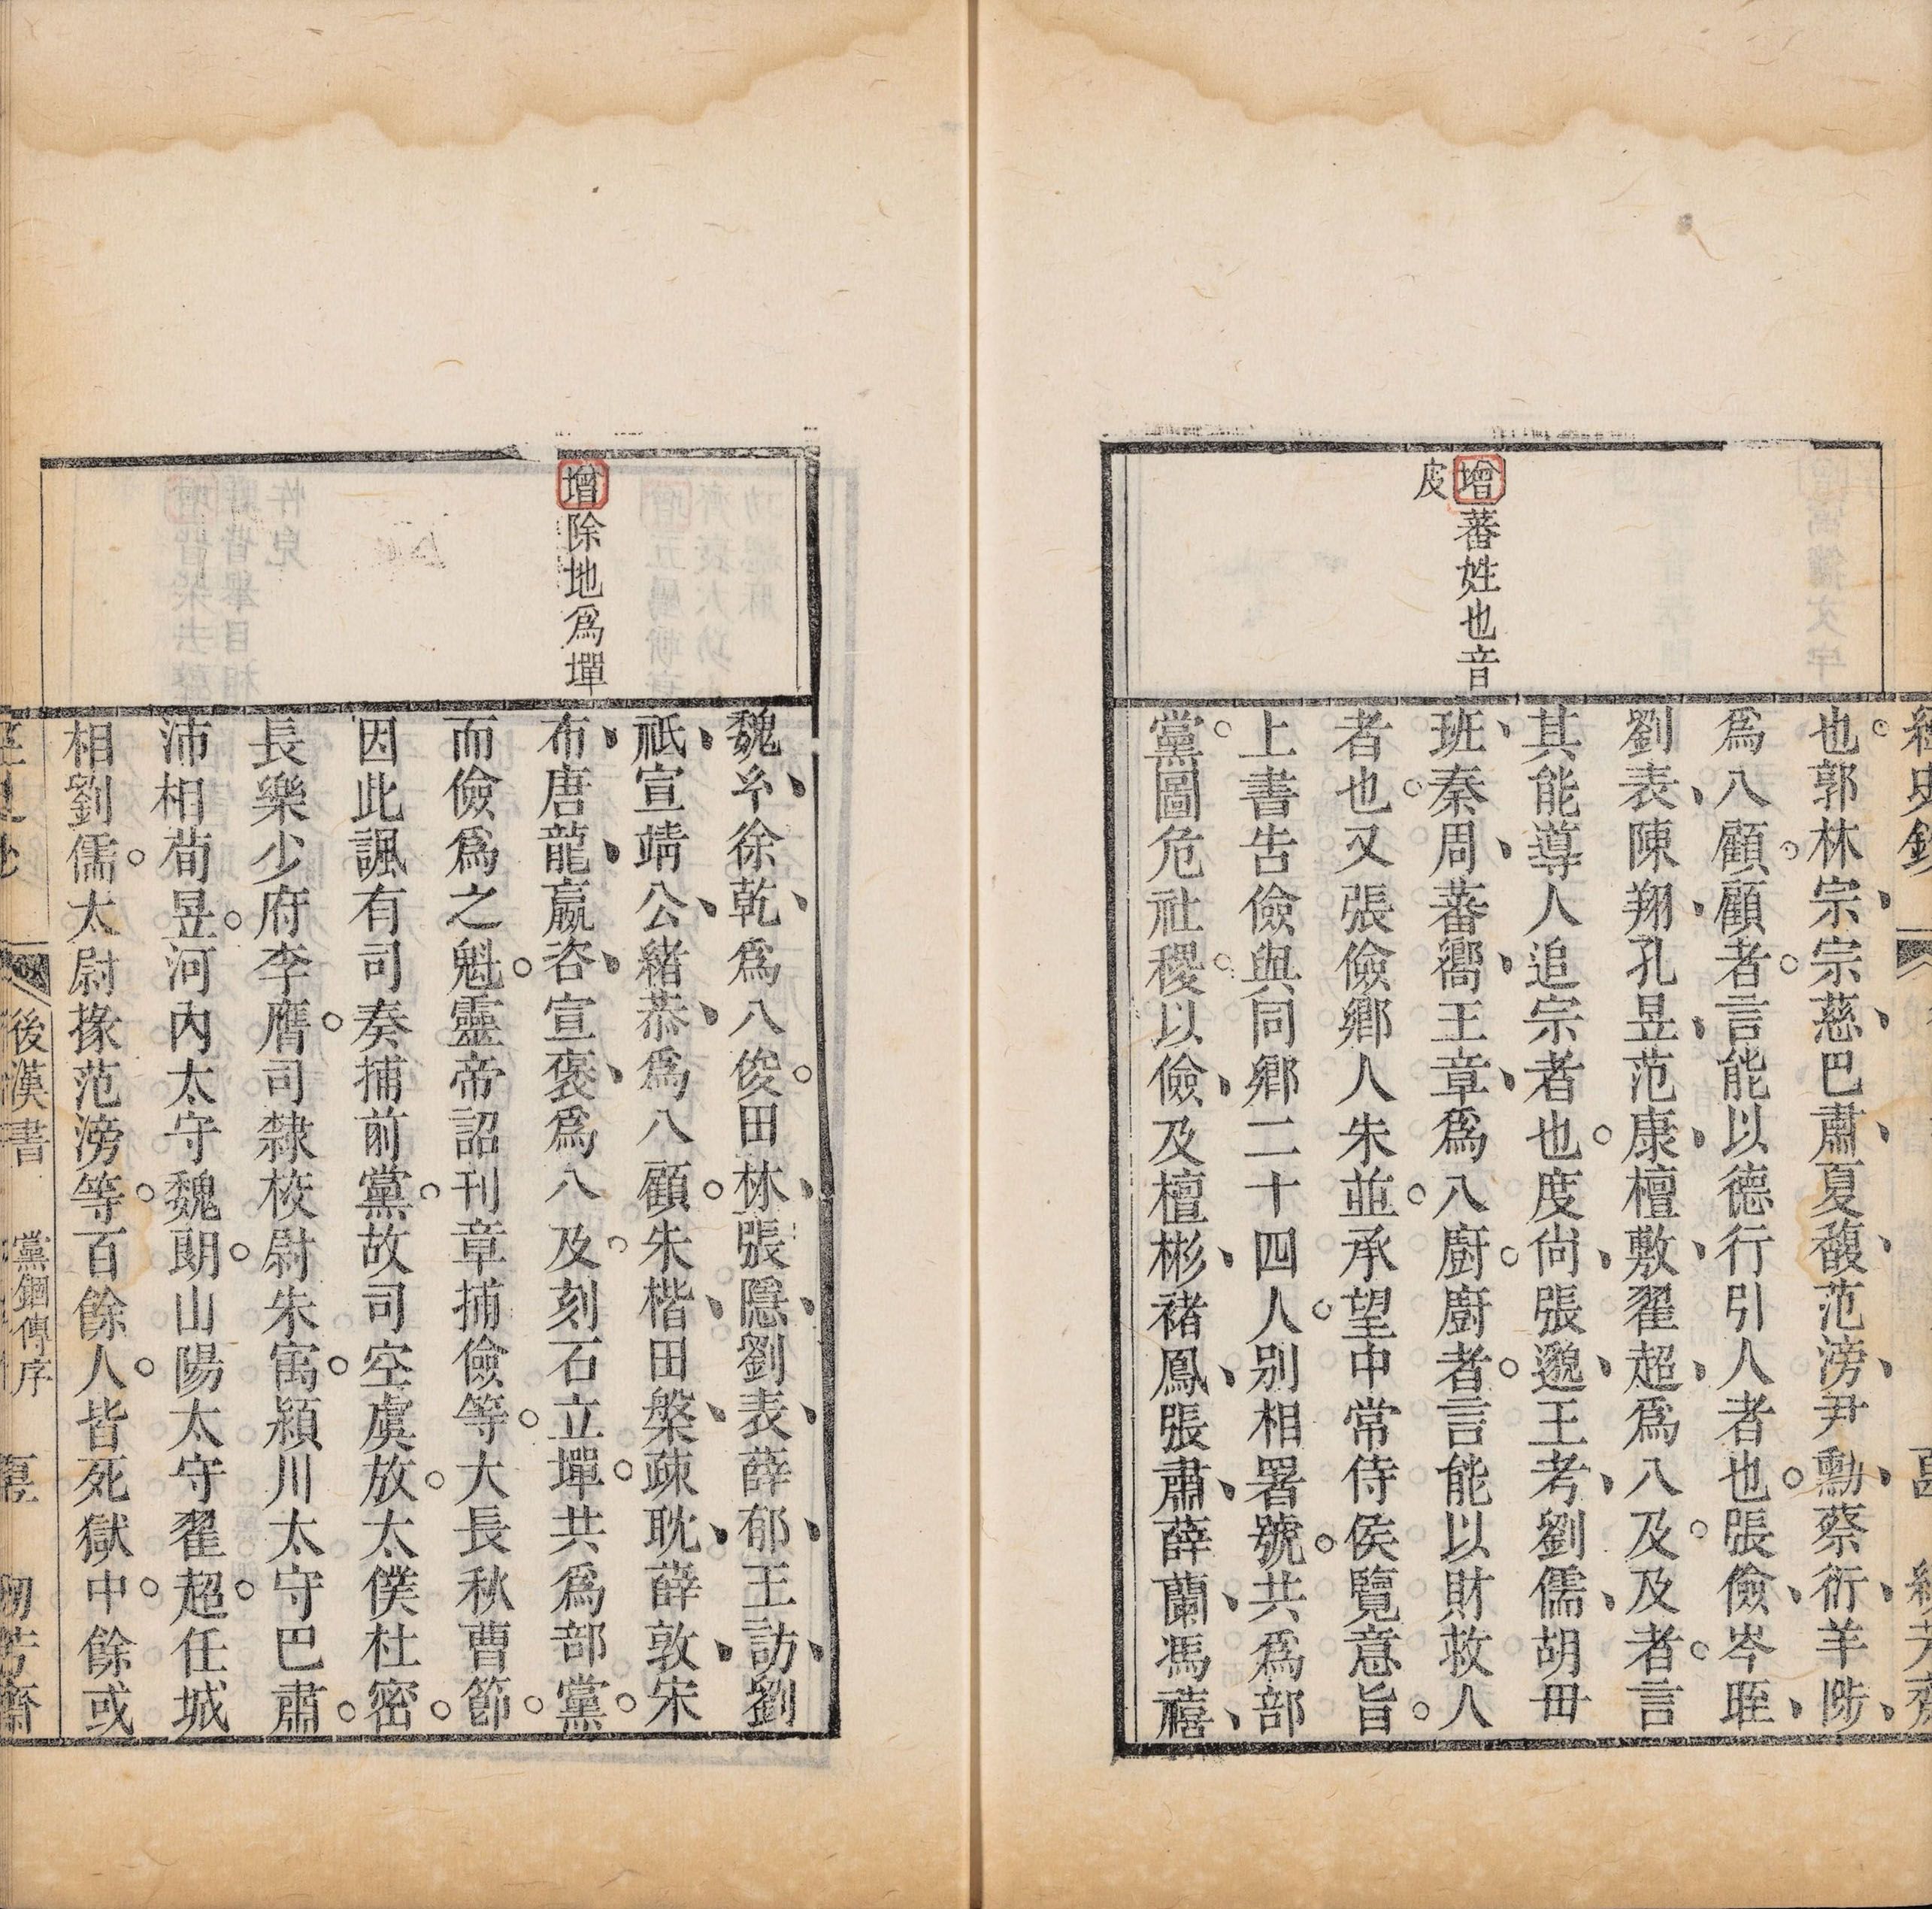 增蕃姓也音
皮
也郭林宗宗慈巴肅夏馥范滂尹勳蔡衍羊陟
爲八顧顧者言能以德行引人者也張儉岑晊
劉表陳翔孔昱范康檀敷翟超爲八及及者言
其能導人追宗者也度尙張邈王考劉儒胡毋
班秦周蕃嚮王章爲八廚廚者言能以財救人
者也又張儉鄉人朱並承望中常侍侯覽意旨
上書告儉與同鄉二十四人別相署號共爲部
黨圖危社稷以儉及檀彬褚鳳張肅薛蘭馮禧
增除地爲墠
魏玄徐乾爲八俊田林張隱劉表薛郁王訪劉
祇宣靖公緒恭爲八顧朱楷田槃疎耽薛敦宋
布唐龍嬴咨宣褒爲八及刻石立墠共爲部黨
而儉爲之魁靈帝詔刊章捕儉等大長秋曹節
因此諷有司奏捕前黨故司空虞放太僕杜密
長樂少府李膺司隸校尉朱㝢潁川太守巴肅
沛相荀昱河內太守魏朗山陽太守翟超任城
相劉儒太尉掾范滂等百餘人皆死獄中餘或
後漢書 黨錮傳序